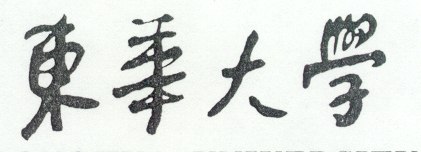 東華大學